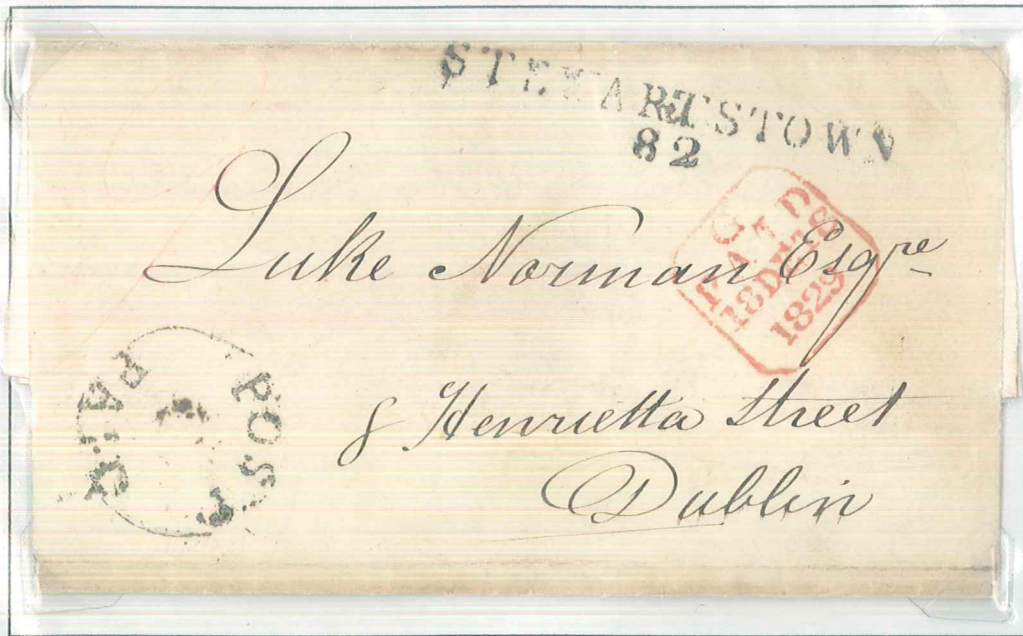 STEWARTSTOWN
82
Luke Norman Esqre
PAID
18 DE 18
1829
8 Henrietta Street
Dublin
POST PAID